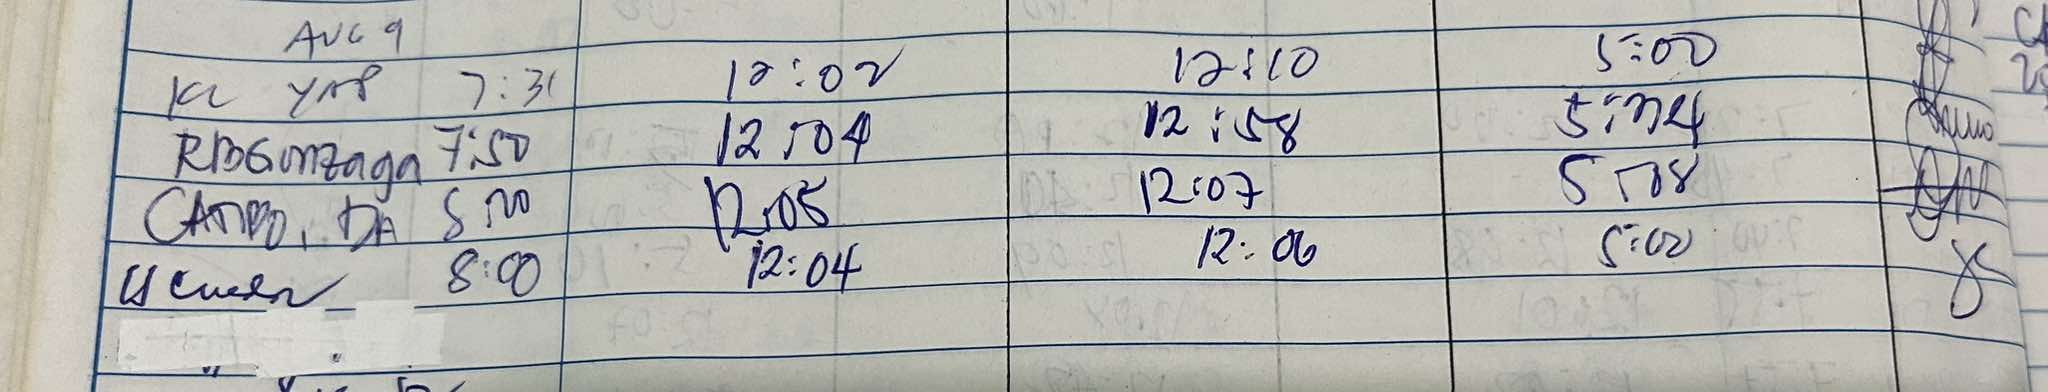 AUG 9
KC YAP 7:31 12:02 12:10 5:00
RBGonzaga 7:50 12:04 12:58 5:34
DA 12:05 12:07 5:08
8:00 12:04 12:06 5:00